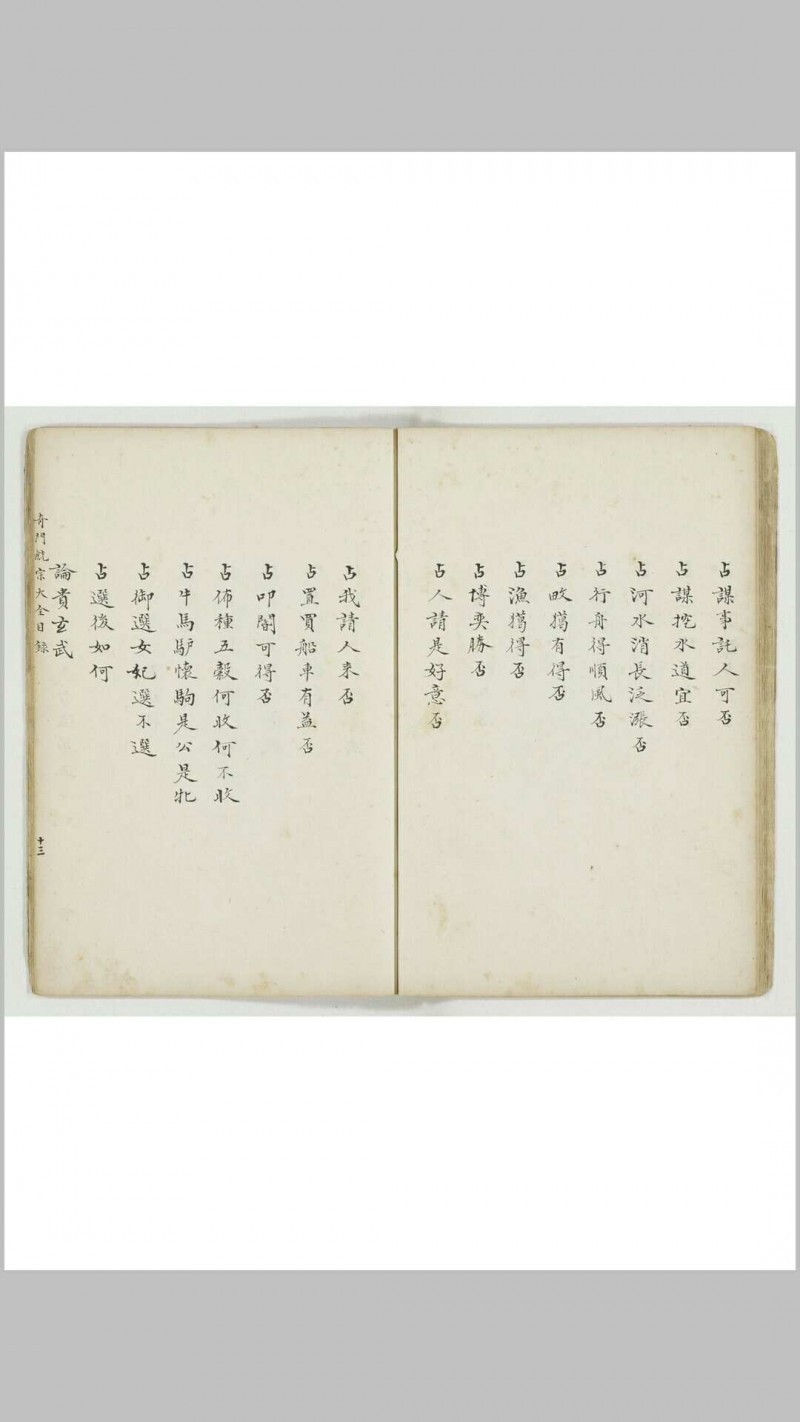 占謀事託人可否
占謀挖水道宜否
占河水消長泛漲否
占行舟得順風否
占畋獵有得否
占漁獵得否
占博奕勝否
占人請是好意否
占我請人来否
占置買船車有益否
占叩閽可得否
占佈種五穀何收何不收
占牛馬馿懷駒是公是牝
占御選女妃選不選
占選後如何
論貴玄武
奇門䆒宗大全目錄
十三